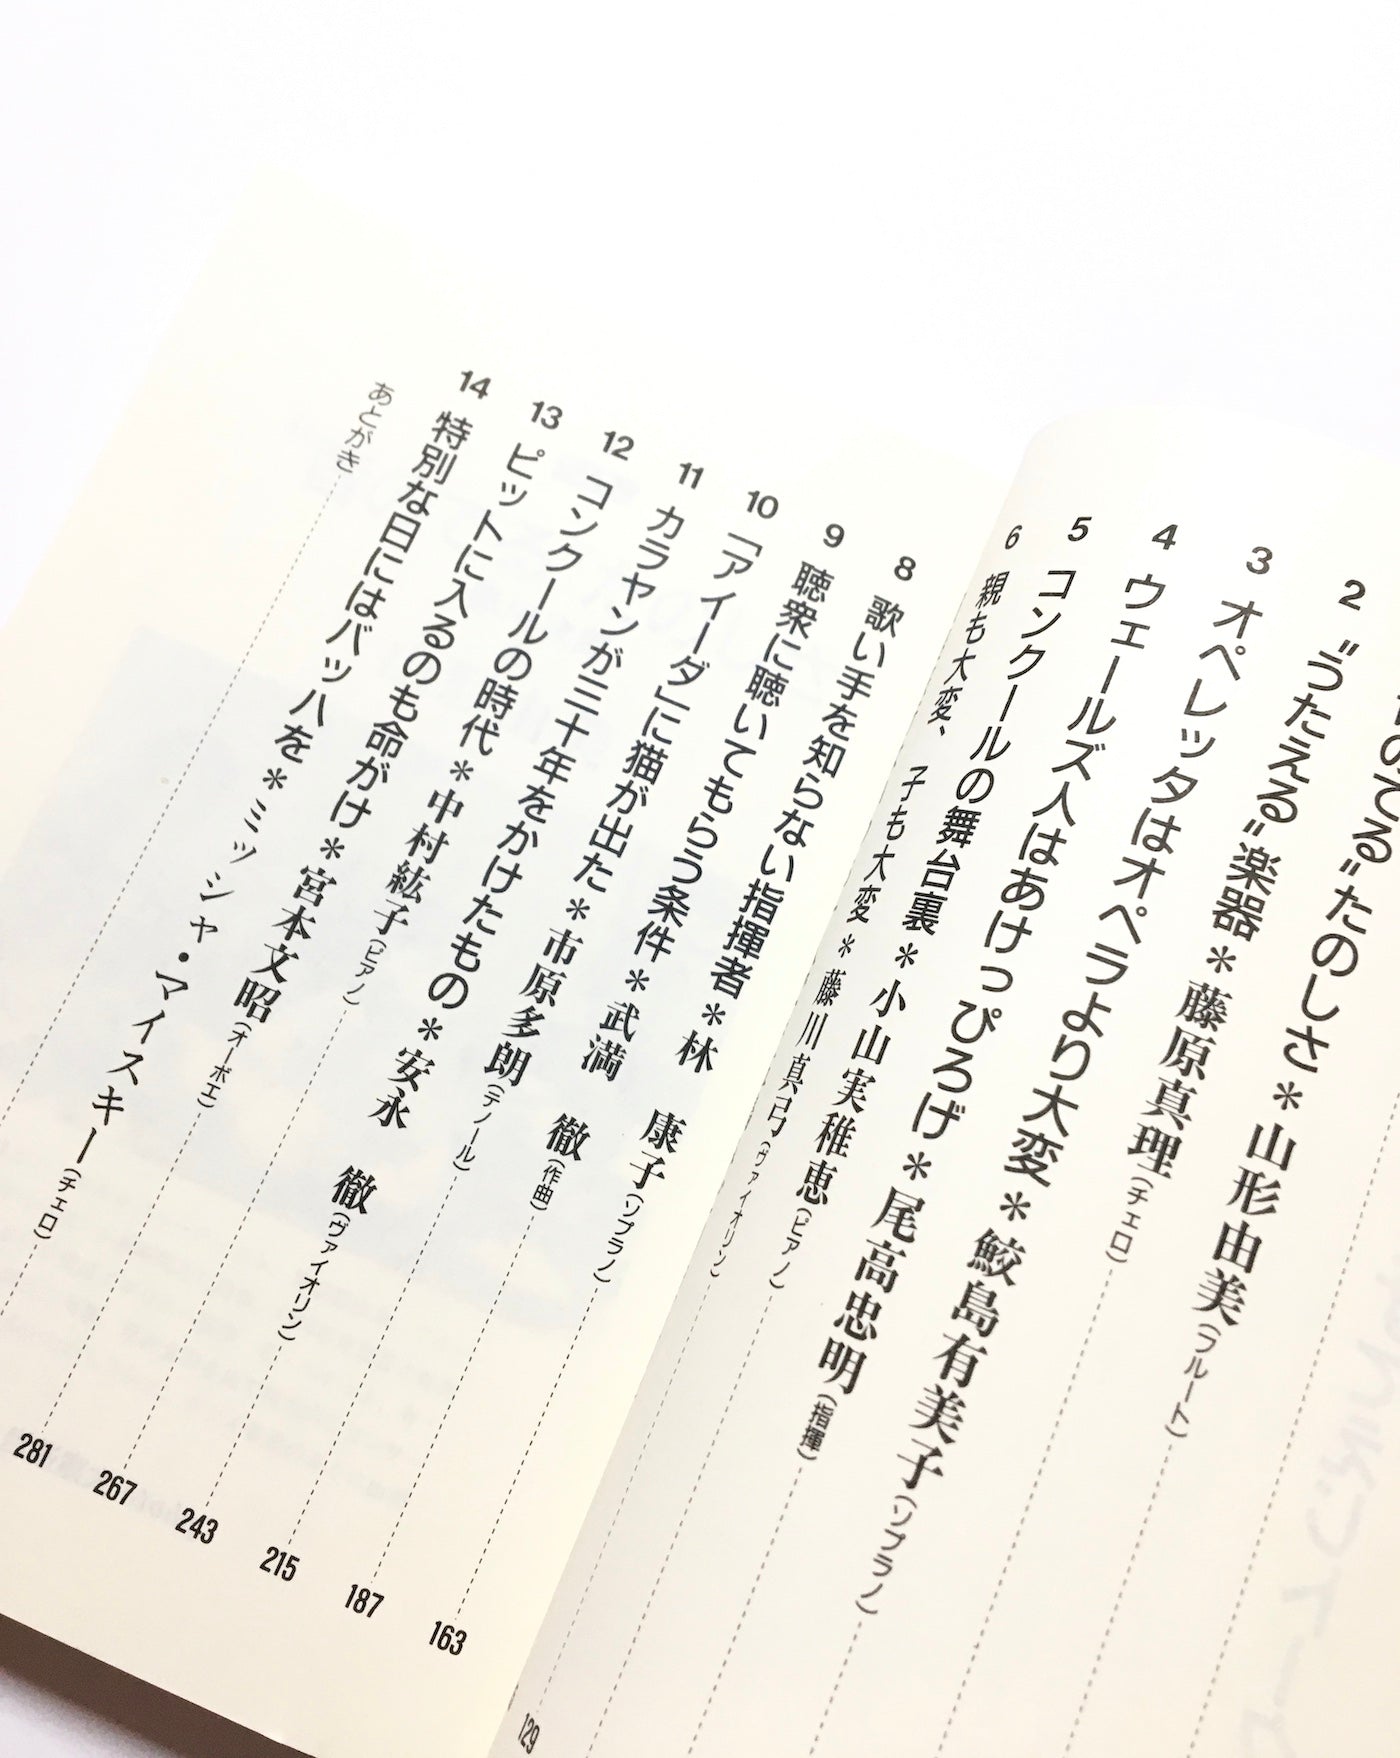 のてる”たのしさ＊山形由美(フルート)
2 “うたえる”楽器＊藤原真理(チェロ)
3 オペレッタはオペラより大変＊鮫島有美子(ソプラノ)
4 ウェールズ人はあけっぴろげ＊尾高忠明(指揮)
5 コンクールの舞台裏＊小山実稚恵(ピアノ)
6 親も大変、子も大変＊藤川真弓(ヴァイオリン) 129
8 歌い手を知らない指揮者＊林 康子(ソプラノ) 163
9 聴衆に聴いてもらう条件＊武満 徹(作曲) 187
10 「アイーダ」に猫が出た＊市原多朗(テノール) 215
11 カラヤンが三十年をかけたもの＊安永 徹(ヴァイオリン) 243
12 コンクールの時代＊中村紘子(ピアノ) 267
13 ピットに入るのも命がけ＊宮本文昭(オーボエ) 281
14 特別な日にはバッハを＊ミッシャ・マイスキー(チェロ)
あとがき